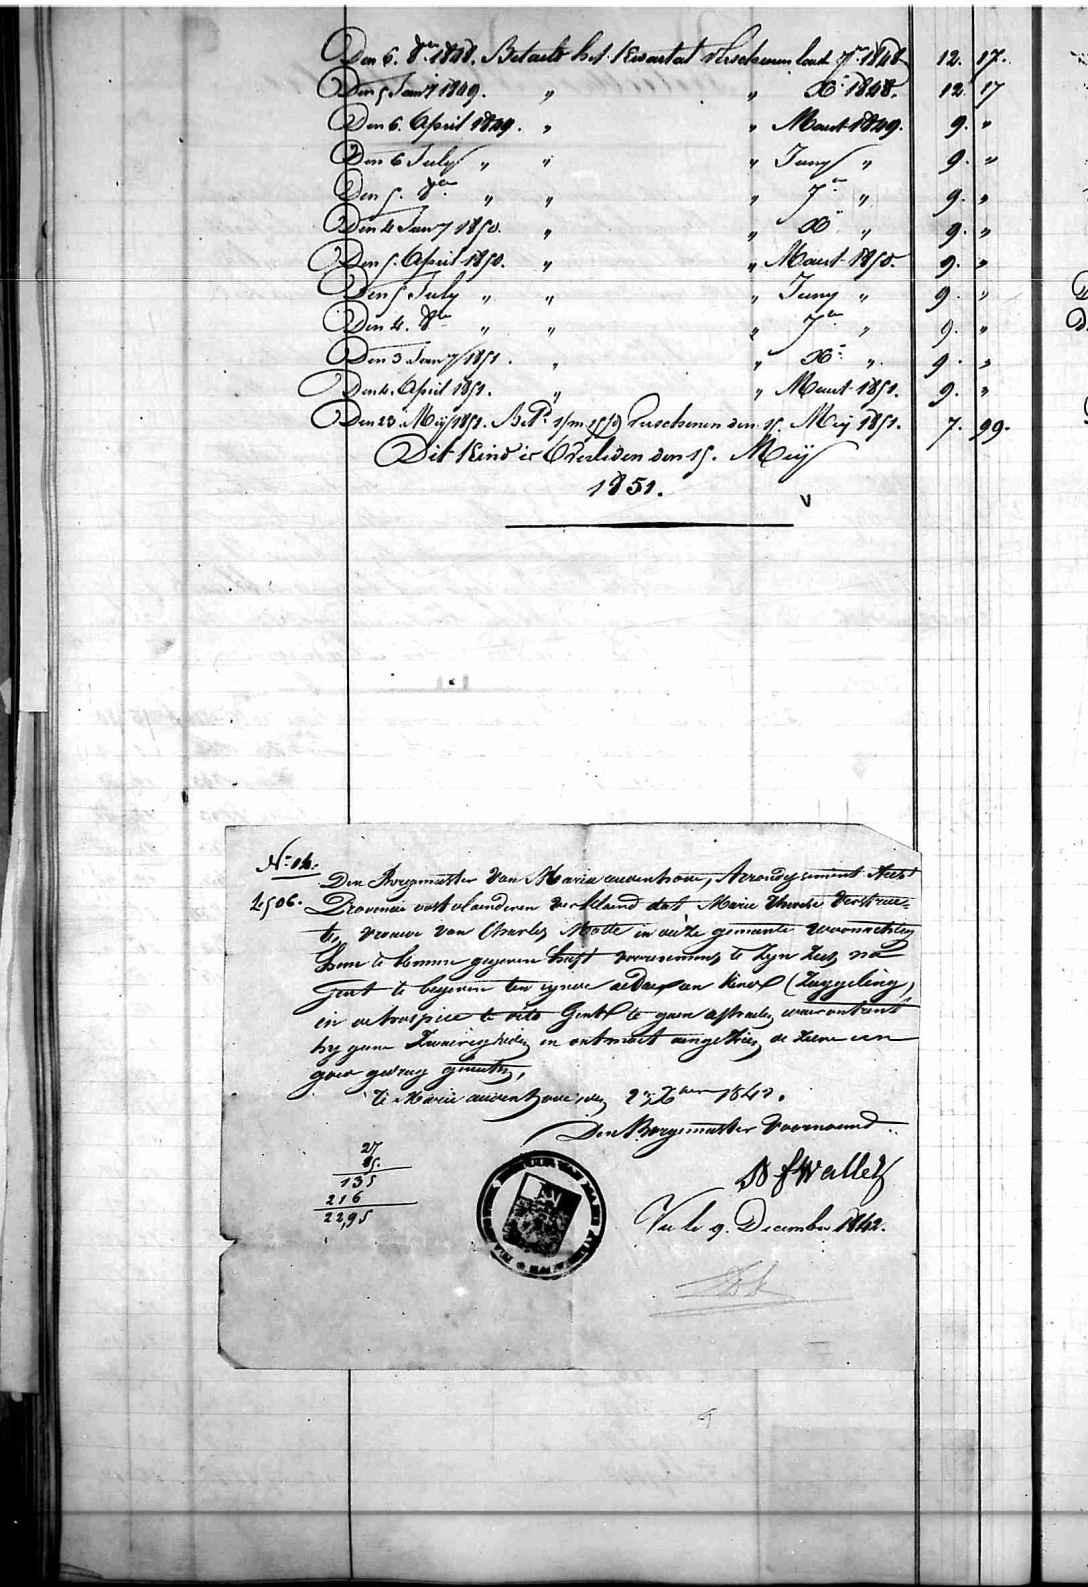 Den 6. 8er 1848. Betaelt het Kwartal verschenen laest 7er 1848 12. 17.
Den 5 Jany 1849. " " Xr 1848. 12. 17
Den 6. April 1849. " " Maert 1849. 9. "
Den 6 July " " " Juny " 9. "
Den 5. 8er " " " 7er " 9. "
Den 4 Jany 1850. " " Xr " 9. "
Den 5. April 1850. " " Maert 1850. 9. "
Den 5 July " " " Juny " 9. "
Den 4. 8er " " " 7er " 9. "
Den 3 Jany 1851. " " Xr " 9. "
Den 4. April 1851. " " Maert 1851. 9. "
Den 23. Meij 1851. Verschenen den 15. Meij 1851. 7. 99.
Dit Kind is Overleden den 15. Meij
1851.
V
Den Borgemeester van Maria audenhove, Arrondissement Aelst
2506. Provincie oost vlaenderen verklaerd dat Marie Therese Verstrae-
te, vrouwe van Charles Motte in deze gemeente woonachtig
hem te kennen gegeven heeft voornemens te zyn zich na
Gent te begeven ten eynde aldaer een kind (Zuygeling)
in het hospice te Gent te gaen afhaelen, waeromtrent
hy geene zwarigheden en ontmoet aengezien de zelve een
goed gedrag
Te Marie audenhove den 1842.
Den Borgemeester voornoemd
27
85.
135
216
22,95
Vu le 9. December 1842.